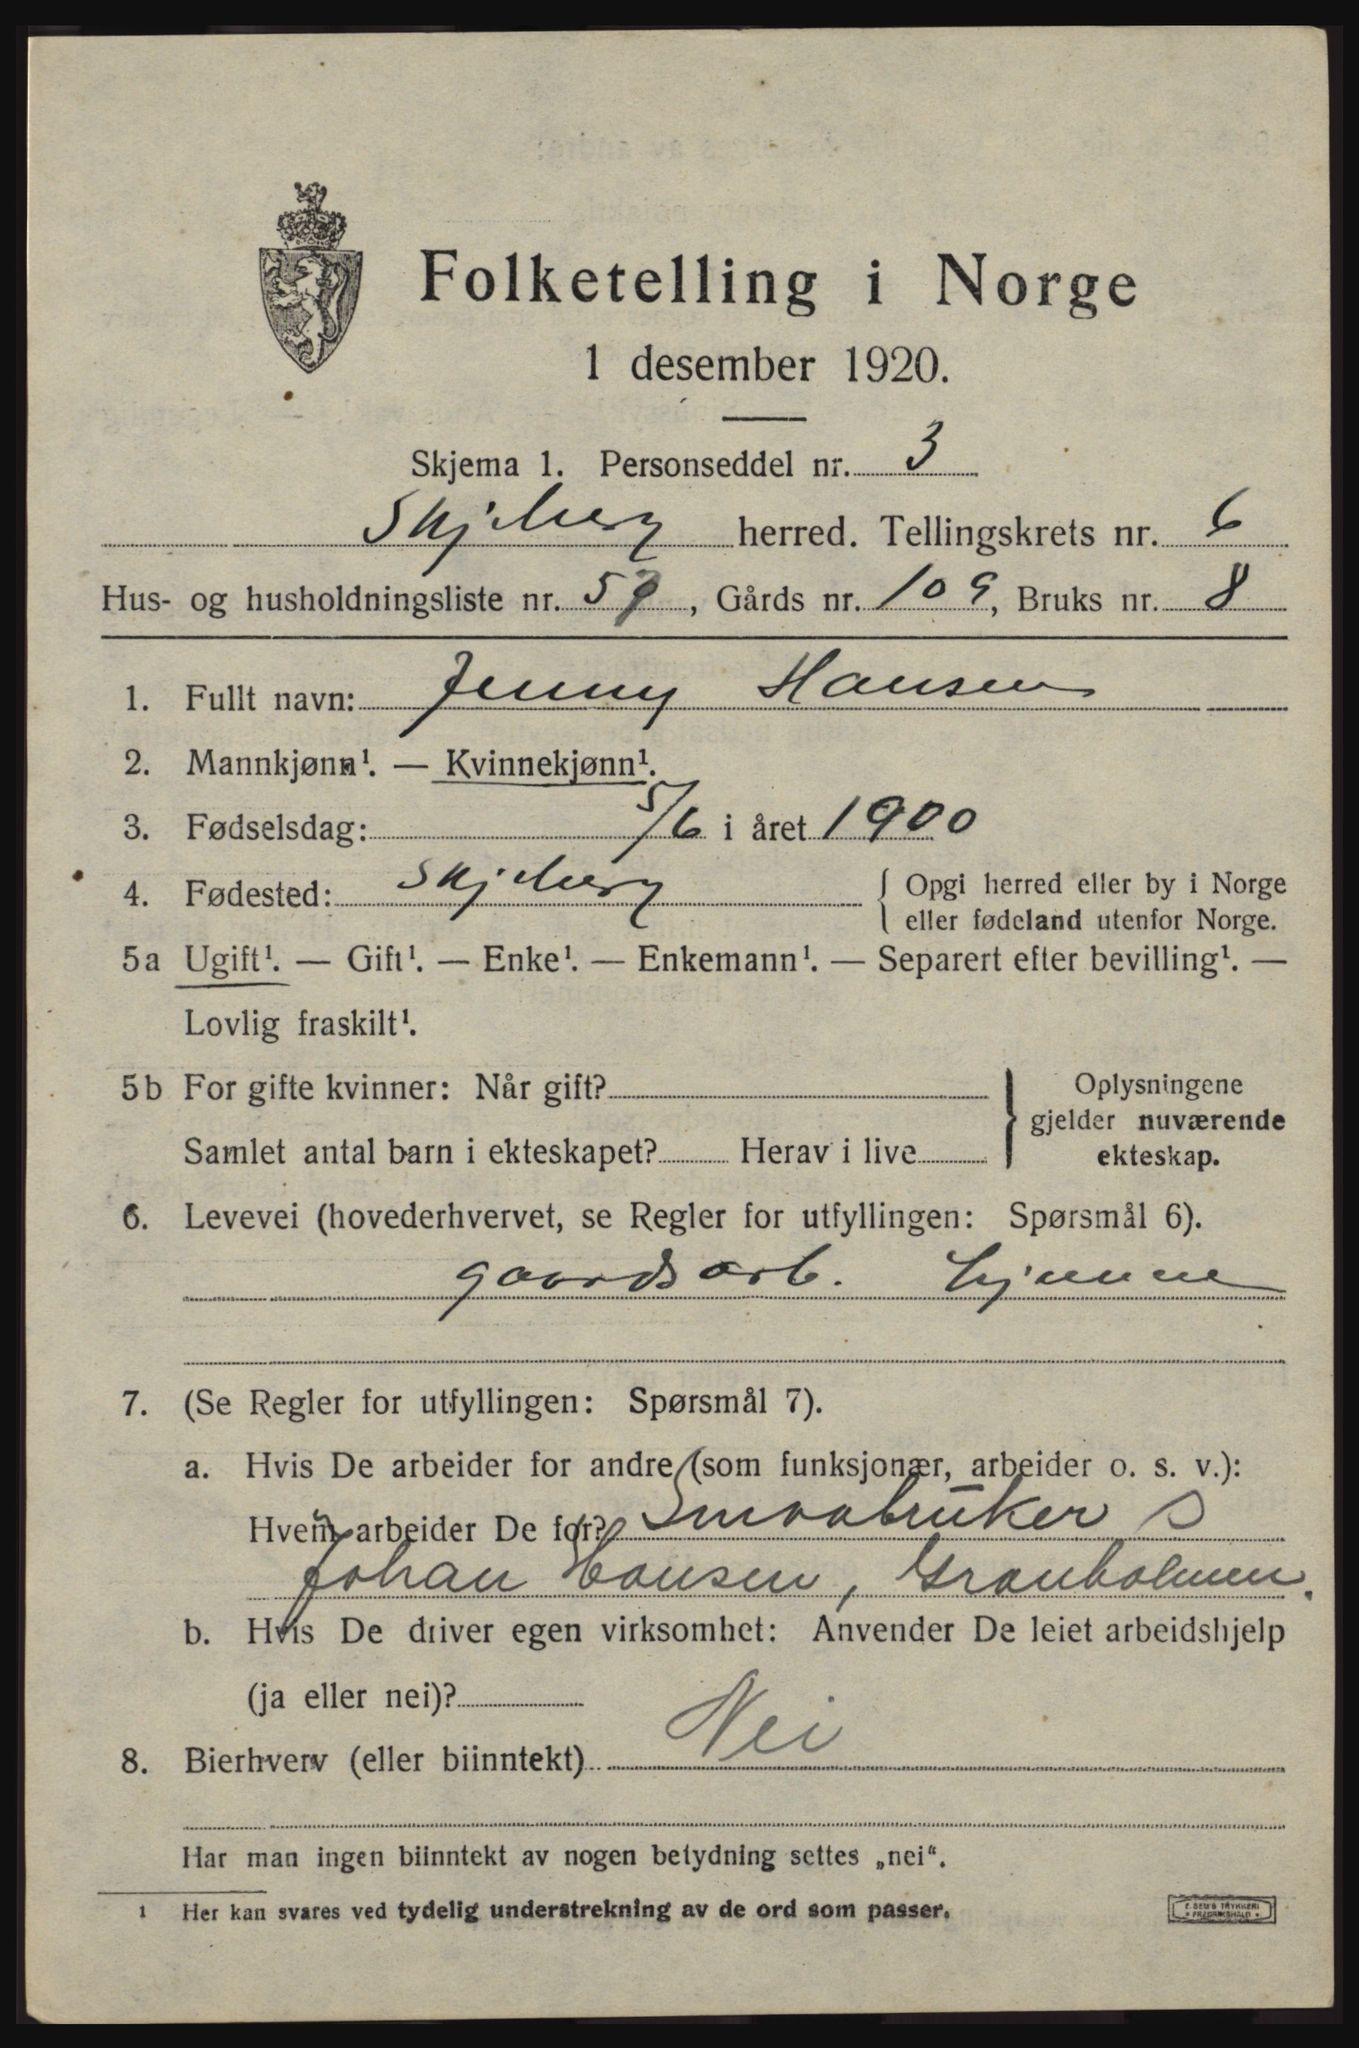 Folketelling i Norge
1 desember 1920.
Skjema 1. Personseddel nr. 3
Skjeberg herred. Tellingskrets nr. 6
Hus- og husholdningsliste nr. , Gårds nr. 109, Bruks nr. 8
1. Fullt navn: Jenny Hansen
2. Mannkjønn¹. — Kvinnekjønn¹.
3. Fødselsdag: 5/6 i året 1900
4. Fødested: Skjeberg { Opgi herred eller by i Norge
eller fødeland utenfor Norge.
5a Ugift¹. — Gift¹. — Enke¹. — Enkemann¹. — Separert efter bevilling¹. —
Lovlig fraskilt¹.
5b For gifte kvinner: Når gift? } Oplysningene
gjelder nuværende
Samlet antal barn i ekteskapet? Herav i live
ekteskap.
6. Levevei (hovederhvervet, se Regler for utfyllingen: Spørsmål 6).
gaardsarb. hjemme
7. (Se Regler for utfyllingen: Spørsmål 7).
a. Hvis De arbeider for andre (som funksjonær, arbeider o. s. v.):
Hvem arbeider De for? Smaabruker
Johan Hansen, Granholmen.
b. Hvis De driver egen virksomhet: Anvender De leiet arbeidshjelp
(ja eller nei)?
8. Bierhverv (eller biinntekt) Nei
Har man ingen biinntekt av nogen betydning settes „nei“.
1 Her kan svares ved tydelig understrekning av de ord som passer.
E. SEM'S TRYKKERI
FREDRIKSHALD